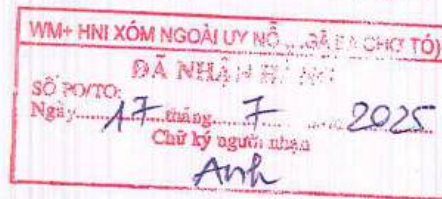 WM+ HNI XÓM NGOÀI UY NỖ CHỢ TÓ)
ĐÃ NHẬN HÀNG
SỐ PO/TO:
Ngày 17 tháng 7 2025
Chữ ký người nhận
Anh